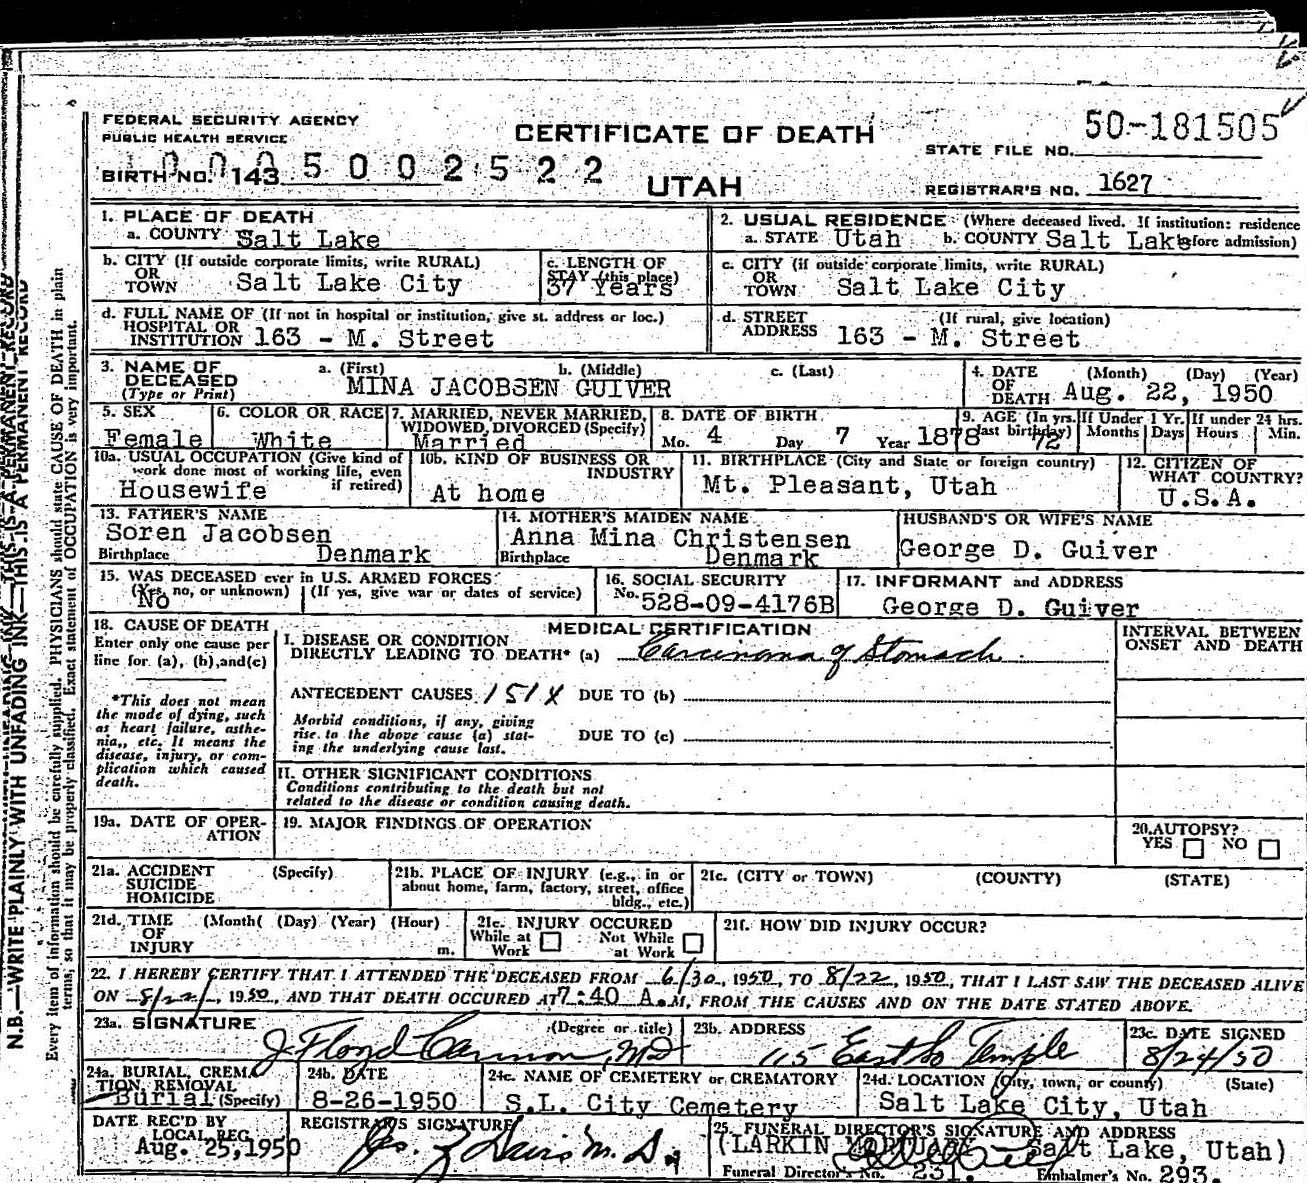 FEDERAL SECURITY AGENCY
PUBLIC HEALTH SERVICE
CERTIFICATE OF DEATH
50-181505
STATE FILE NO.
BIRTH NO. 143 5 0 0 2 5 2 2
UTAH
REGISTRAR'S NO. 1627
1. PLACE OF DEATH
a. COUNTY Salt Lake
2. USUAL RESIDENCE (Where deceased lived. If institution: residence
a. STATE Utah b. COUNTY Salt Lake before admission)
b. CITY (If outside corporate limits, write RURAL)
OR
TOWN Salt Lake City
c. LENGTH OF
STAY (this place)
37 Years
c. CITY (if outside corporate limits, write RURAL)
OR
TOWN Salt Lake City
d. FULL NAME OF (If not in hospital or institution, give st. address or loc.)
HOSPITAL OR
INSTITUTION 163 - M. Street
d. STREET (If rural, give location)
ADDRESS 163 - M. Street
3. NAME OF DECEASED (Type or Print)
a. (First) b. (Middle) c. (Last)
MINA JACOBSEN GUIVER
4. DATE OF DEATH (Month) (Day) (Year)
Aug. 22, 1950
5. SEX
Female
6. COLOR OR RACE
White
7. MARRIED, NEVER MARRIED,
WIDOWED, DIVORCED (Specify)
Married
8. DATE OF BIRTH
Mo. 4 Day 7 Year 1878
9. AGE (In yrs. last birthday) 72
If Under 1 Yr. Months Days
If under 24 hrs. Hours Min.
10a. USUAL OCCUPATION (Give kind of
work done most of working life, even
if retired)
Housewife
10b. KIND OF BUSINESS OR
INDUSTRY
At home
11. BIRTHPLACE (City and State or foreign country)
Mt. Pleasant, Utah
12. CITIZEN OF
WHAT COUNTRY?
U.S.A.
13. FATHER'S NAME
Soren Jacobsen
Birthplace Denmark
14. MOTHER'S MAIDEN NAME
Anna Mina Christensen
Birthplace Denmark
HUSBAND'S OR WIFE'S NAME
George D. Guiver
15. WAS DECEASED ever in U.S. ARMED FORCES?
(Yes, no, or unknown) (If yes, give war or dates of service)
No
16. SOCIAL SECURITY
No. 528-09-4176B
17. INFORMANT and ADDRESS
George D. Guiver
18. CAUSE OF DEATH
Enter only one cause per
line for (a), (b), and (c)
*This does not mean
the mode of dying, such
as heart failure, asthe-
nia, etc. It means the
disease, injury, or com-
plication which caused
death.
MEDICAL CERTIFICATION
I. DISEASE OR CONDITION
DIRECTLY LEADING TO DEATH* (a) Carcinoma of Stomach.
INTERVAL BETWEEN
ONSET AND DEATH
ANTECEDENT CAUSES 151X DUE TO (b)
Morbid conditions, if any, giving
rise to the above cause (a) stat-
ing the underlying cause last.
DUE TO (c)
II. OTHER SIGNIFICANT CONDITIONS
Conditions contributing to the death but not
related to the disease or condition causing death.
19a. DATE OF OPER-
ATION
19. MAJOR FINDINGS OF OPERATION
20. AUTOPSY?
YES NO
21a. ACCIDENT (Specify)
SUICIDE
HOMICIDE
21b. PLACE OF INJURY (e.g., in or
about home, farm, factory, street, office
bldg., etc.)
21c. (CITY or TOWN) (COUNTY) (STATE)
21d. TIME (Month( (Day) (Year) (Hour)
OF
INJURY m.
21e. INJURY OCCURED
While at Work Not While at Work
21f. HOW DID INJURY OCCUR?
22. I HEREBY CERTIFY THAT I ATTENDED THE DECEASED FROM 6/30, 1950, TO 8/22, 1950, THAT I LAST SAW THE DECEASED ALIVE
ON 8/22/, 1950, AND THAT DEATH OCCURED AT 7:40 A.M, FROM THE CAUSES AND ON THE DATE STATED ABOVE.
23a. SIGNATURE (Degree or title)
J Floyd Cannon, MD
23b. ADDRESS
115 East So Temple
23c. DATE SIGNED
8/24/50
24a. BURIAL, CREMA-
TION, REMOVAL
Burial (Specify)
24b. DATE
8-26-1950
24c. NAME OF CEMETERY or CREMATORY
S.L. City Cemetery
24d. LOCATION (City, town, or county) (State)
Salt Lake City, Utah
DATE REC'D BY
LOCAL REG.
Aug. 25, 1950
REGISTRAR'S SIGNATURE
Davis M. D.
25. FUNERAL DIRECTOR'S SIGNATURE AND ADDRESS
(LARKIN MORTUARY - Salt Lake, Utah)
Funeral Director's No. 231. Embalmer's No. 293.
N.B.—WRITE PLAINLY WITH UNFADING INK—THIS IS A PERMANENT RECORD
Every item of information should be carefully supplied. PHYSICIANS should state CAUSE OF DEATH in plain
terms, so that it may be properly classified. Exact statement of OCCUPATION is very important.